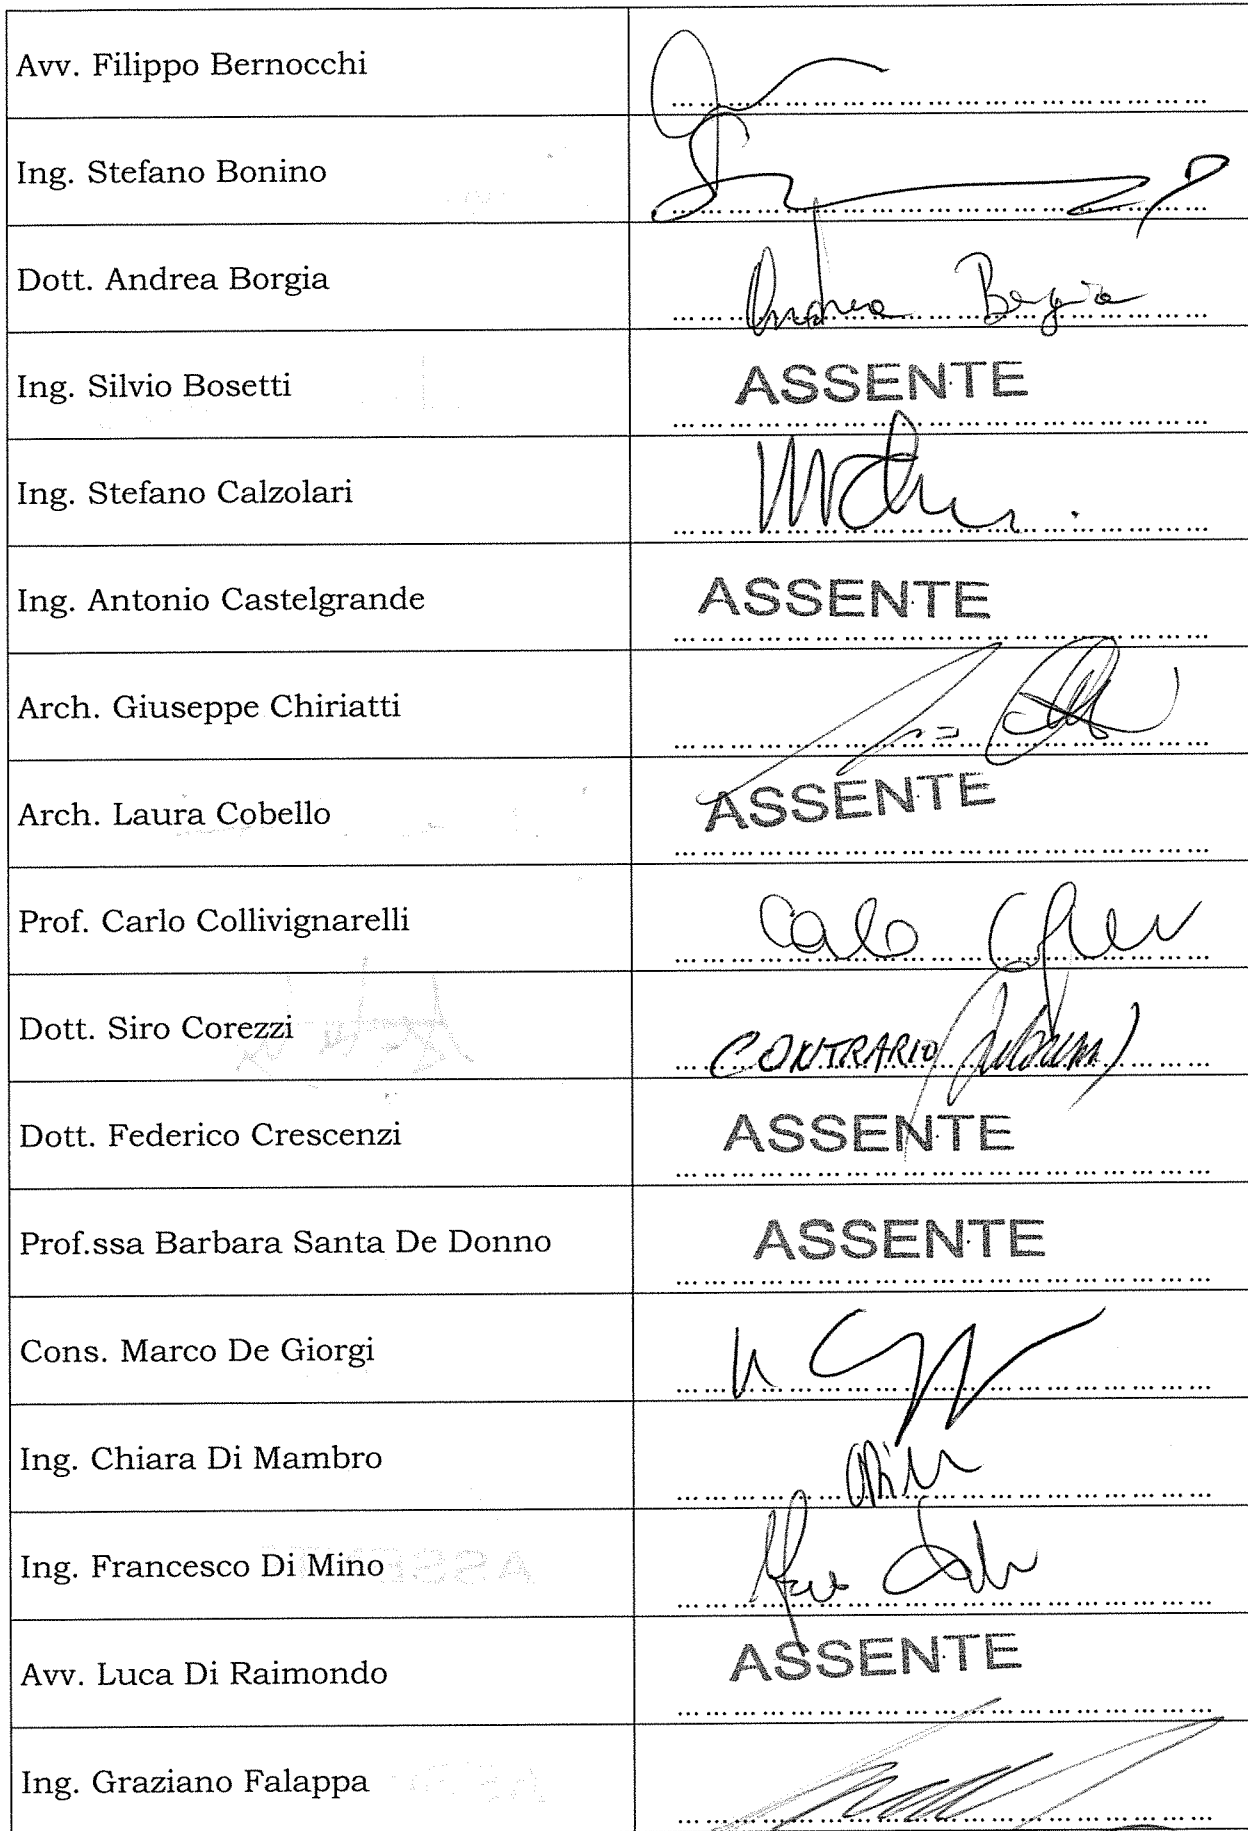 Avv. Filippo Bernocchi
Ing. Stefano Bonino
Dott. Andrea Borgia Andrea Borgia
Ing. Silvio Bosetti ASSENTE
Ing. Stefano Calzolari
Ing. Antonio Castelgrande ASSENTE
Arch. Giuseppe Chiriatti
Arch. Laura Cobello ASSENTE
Prof. Carlo Collivignarelli Carlo
Dott. Siro Corezzi CONTRARIO
Dott. Federico Crescenzi ASSENTE
Prof.ssa Barbara Santa De Donno ASSENTE
Cons. Marco De Giorgi
Ing. Chiara Di Mambro
Ing. Francesco Di Mino
Avv. Luca Di Raimondo ASSENTE
Ing. Graziano Falappa